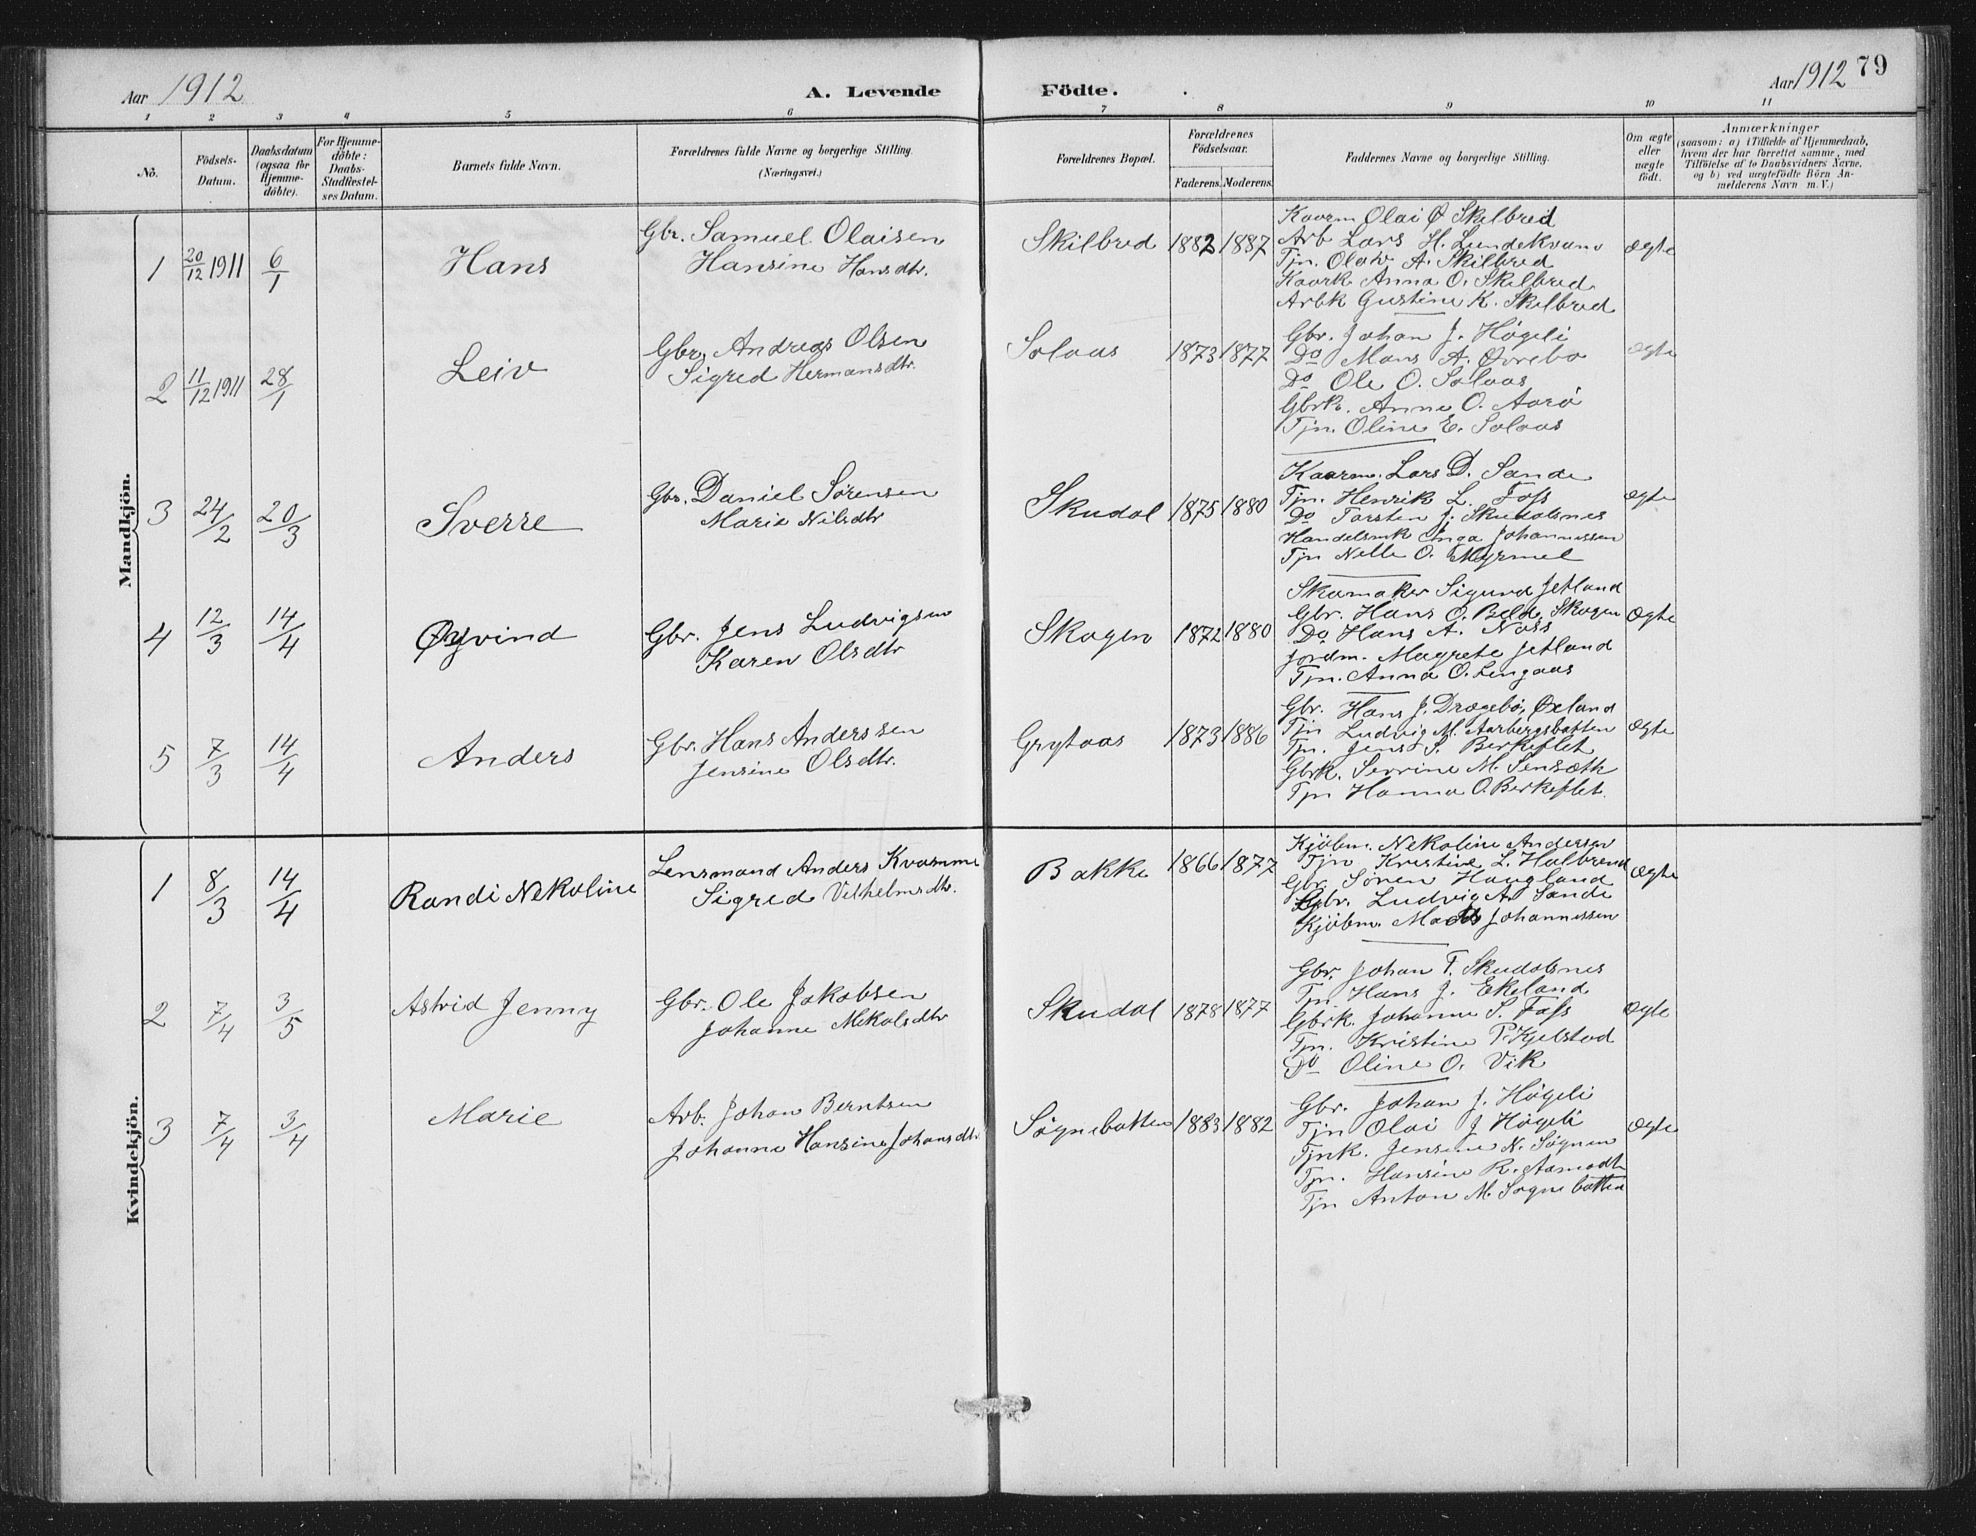 Aar 1912
A. Levende Födte.
Aar 1912 79
1 2 3 4 5 6 7 8 9 10 11
No.
Födsels-Datum.
Daabsdatum (ogsaa for Hjemme-döbte).
For Hjemme-döbte: Daabs-Stadfæstel-ses Datum.
Barnets fulde Navn.
Forældrenes fulde Navne og borgerlige Stilling. (Næringsvei.)
Forældrenes Bopæl.
Forældrenes Födselsaar.
Faderens. Moderens.
Faddernes Navne og borgerlige Stilling.
Om ægte eller uægte födt.
Anmærkninger
(saasom: a) i Tilfælde af Hjemmedaab, hvem der har forrettet samme, med Tilföielse af to Daabsvidners Navne, og b) ved uægtefödte Börn An-melderens Navn m.V.)
Mandkjön.
1 20/12 1911 6/1 Hans
Gbr. Samuel Olaisen
Hansine Hansdtr.
Skilbred 1882 1887
Kaarm Olai Ø Skilbred
Arb Lars H. Lundekvam
Tjn. Olav A. Skilbred
Kaark Anna O. Skilbred
Arbk Gustine K. Skilbred
Ægte
2 11/12 1911 28/1 Leiv
Gbr. Andreas Olsen
Sigred Hermansdtr.
Solaas 1873 1877
Gbr. Johan J. Høgeli
Do Mons A. Øvrebo
Do Ole O. Solaas
Gbrk. Anne O. Aarø
Tjn. Oline E. Solaas
Ægte
3 24/2 20/3 Sverre
Gbr. Daniel Sørensen
Marie Nilsdtr
Skudal 1875 1880
Kaarm. Lars D. Sande
Tjn. Henrik L. Foss
Do Torsten J. Skudalsnes
Handelsmk Inga Johannessen
Tjn Nelle O. Myrmel
Ægte
4 12/3 14/4 Øyvind
Gbr. Jens Ludvigsen
Karen Olsdtr
Skogen 1872 1880
Skomaker Sigurd Jetland
Gbr. Hans O. Beld, Skogen
Do Hans A. Noss
Jordm. Magrete Jetland
Tjn. Anna O. Lengaas
Ægte
5 7/3 14/4 Anders
Gbr. Hans Anderssen
Jensine Olsdtr.
Grytaas 1873 1886
Gbr. Hans J. Dragebø, Oxland
Tjn Ludvig M. Aarbergsbotten
Tjn. Jens S. Berkeflet
Gbrk. Serine M. Senseth
Tjn Hanna O. Berkeflet.
Ægte
Kvindekjön.
1 8/3 14/4 Randi Nekoline
Lensmand Anders Kvamme
Sigred Vilhelmsdtr.
Bakke 1866 1877
Kjöbm. Nekoline Andersen
Tjn Kristine L. Halbrend
Gbr. Sören Haugland
Gbr. Ludvig A. Sande
Kjöbm. Johannessen
Ægte
2 7/4 3/5 Astrid Jenny
Gbr. Ole Jakobsen
Johanne Nekolsdtr
Skudal 1878 1877
Gbr. Johan T. Skudalsnes
Tjn. Hans J. Ekeland
Gbrk. Johanne S. Foss
Tjn. Kristine P. Kjelstad
Do Oline O. Vik
Ægte
3 7/4 3/4 Marie
Arb. Johan Berntsen
Johanne Hansine Johansdtr.
Søgnebotten 1883 1882
Gbr. Johan J. Høgeli
Tjn Olai J Høgeli
Tjnk. Jensine N. Søgnen
Tjn. Hansine R. Aamodt
Tjn Anton M. Søgnebotten
Ægte